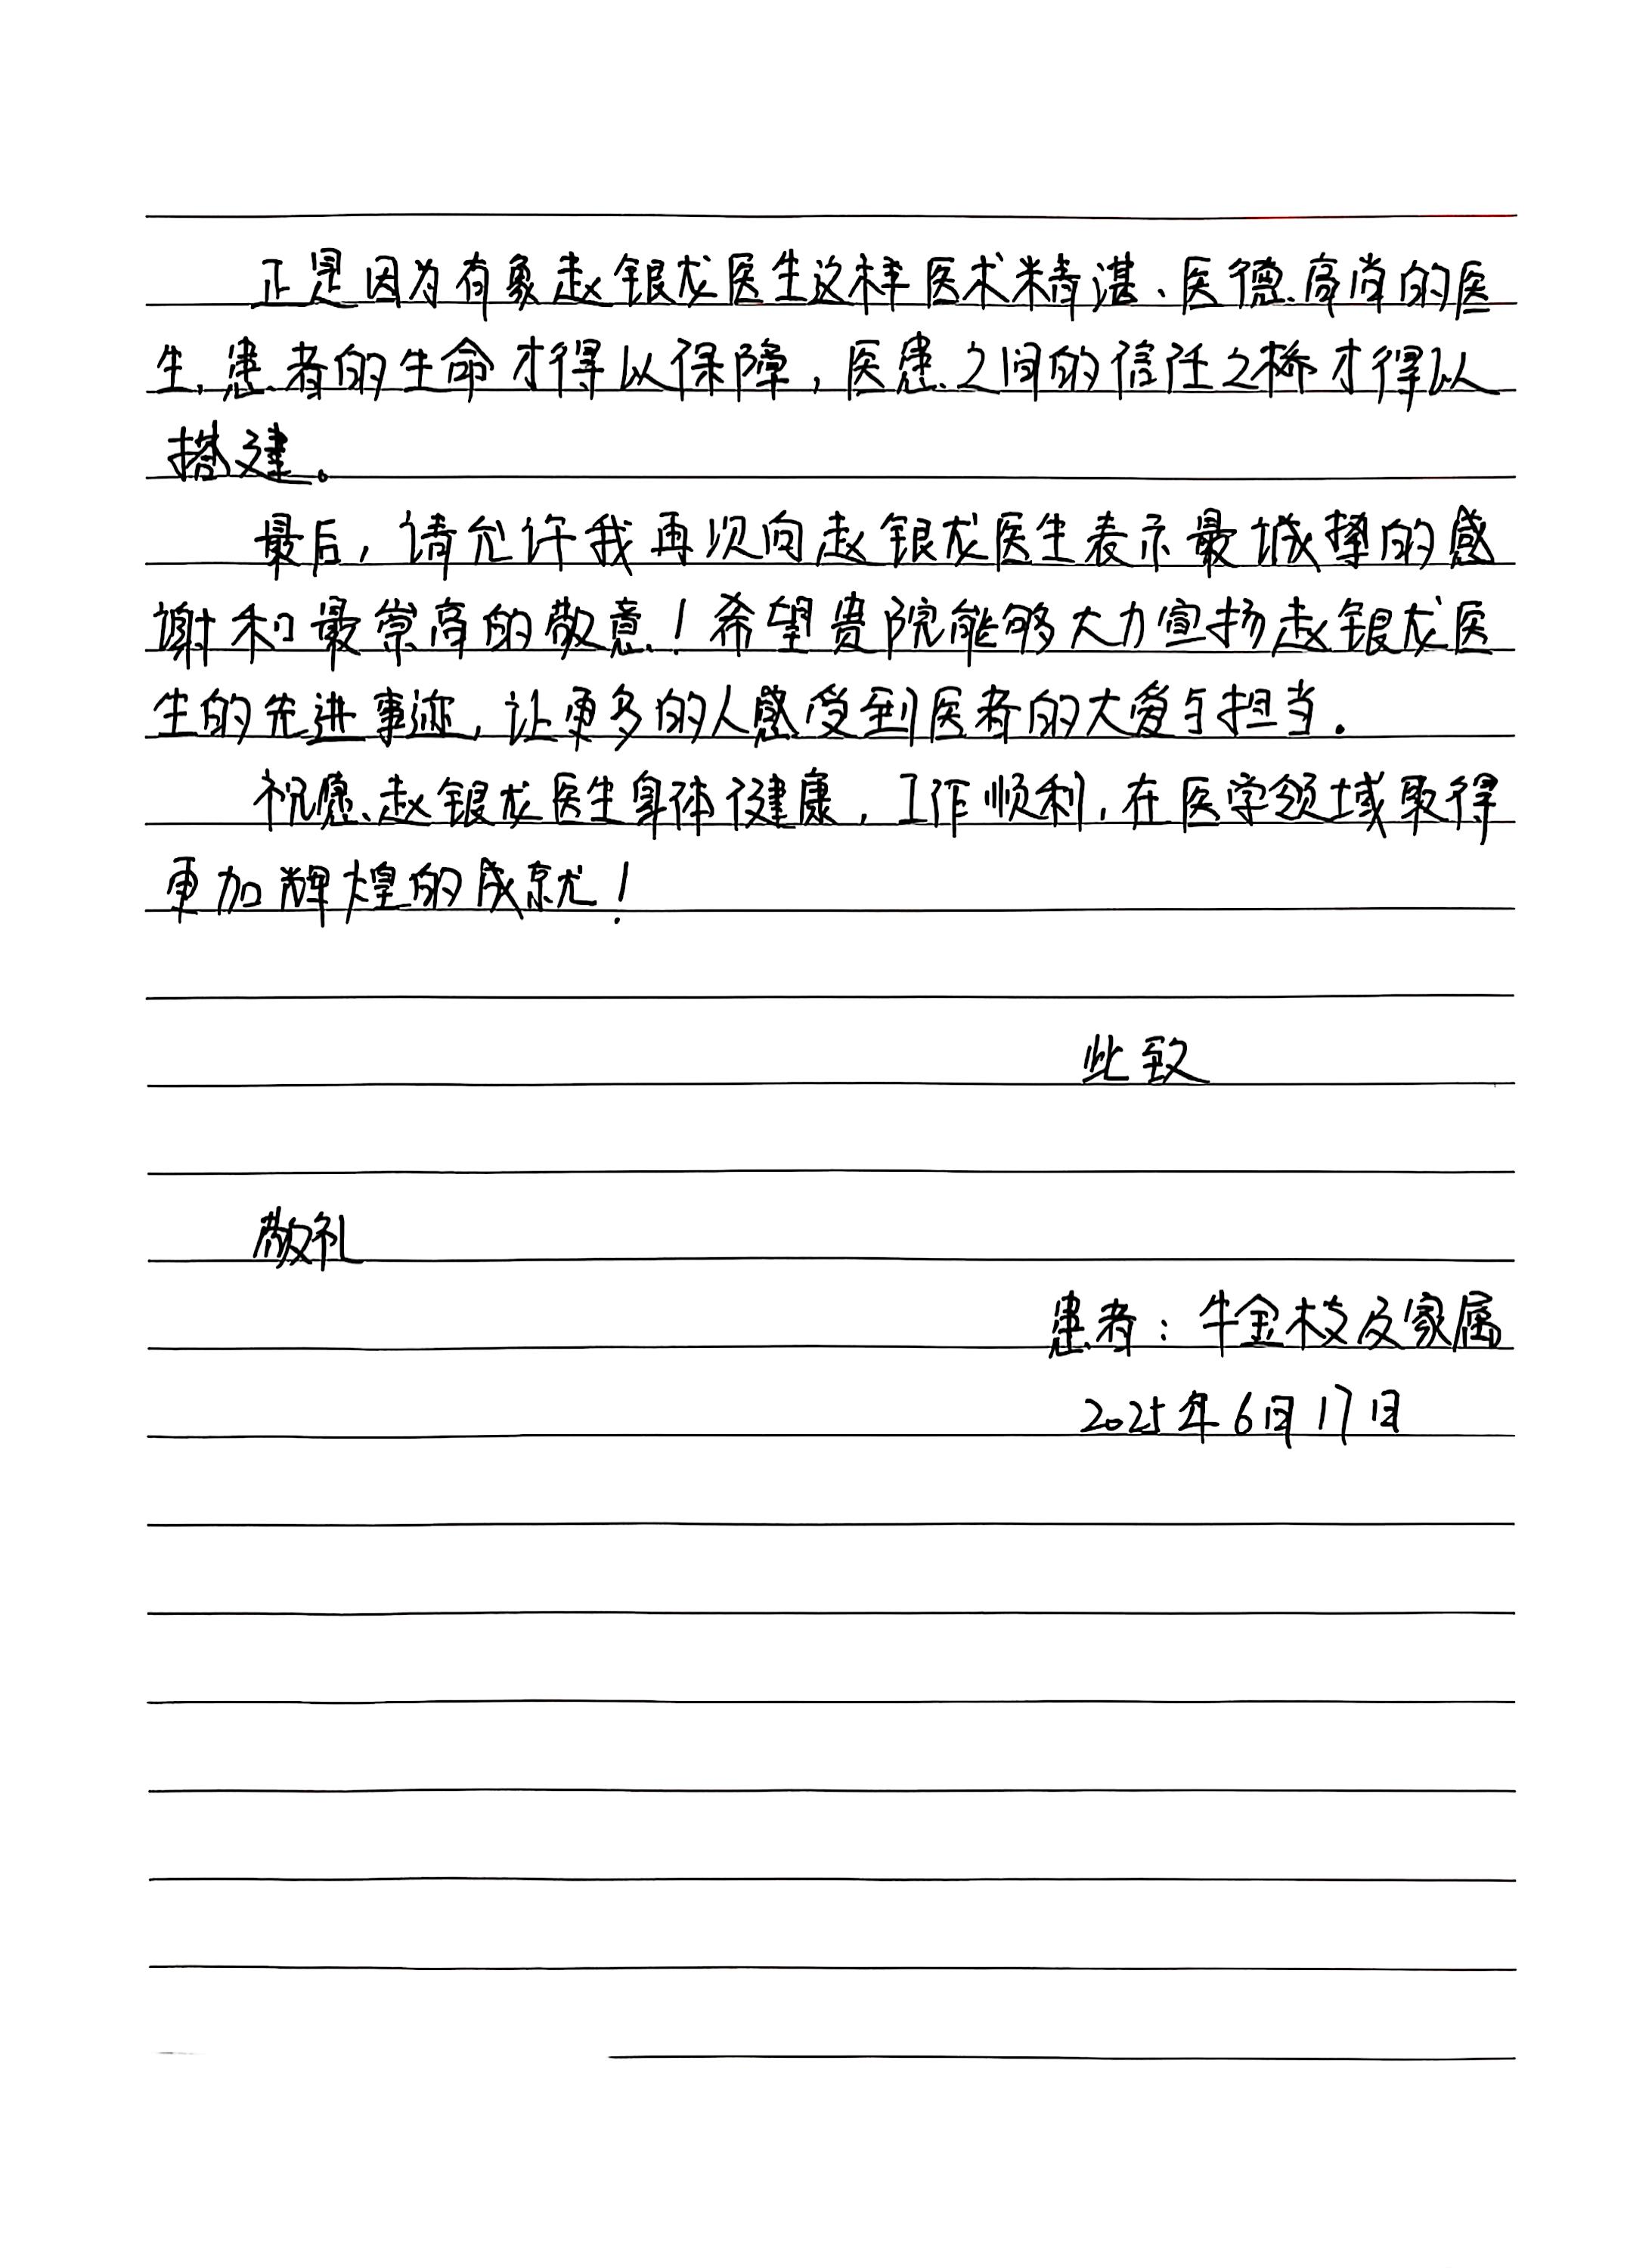 正是因为有象赵银龙医生这样医术精湛、医德高尚的医
生,患者的生命才得以保障,医患之间的信任之桥才得以
搭建。
最后,请允许我再次向赵银龙医生表示最诚挚的感
谢和最崇高的敬意!希望贵院能够大力宣扬赵银龙医
生的先进事迹,让更多的人感受到医者的大爱与担当.
祝愿赵银龙医生身体健康,工作顺利,在医学领域取得
更加辉煌的成就!
此致
敬礼
患者:牛金枝及家属
2025年6月17日